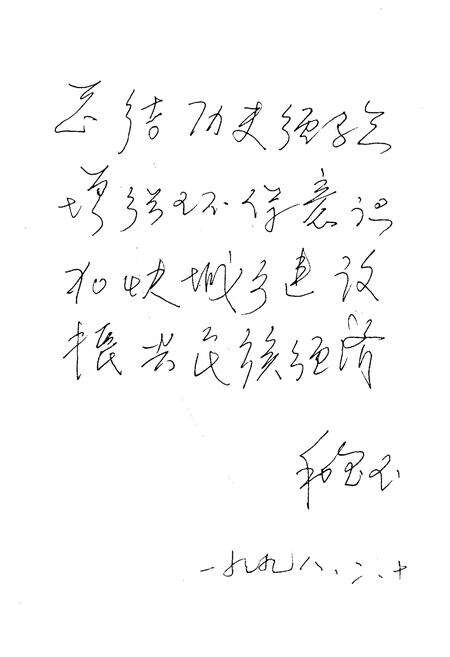 总结历史经验
增强环保意识
加快城乡建设
振兴民族经济
一九九八、六、十